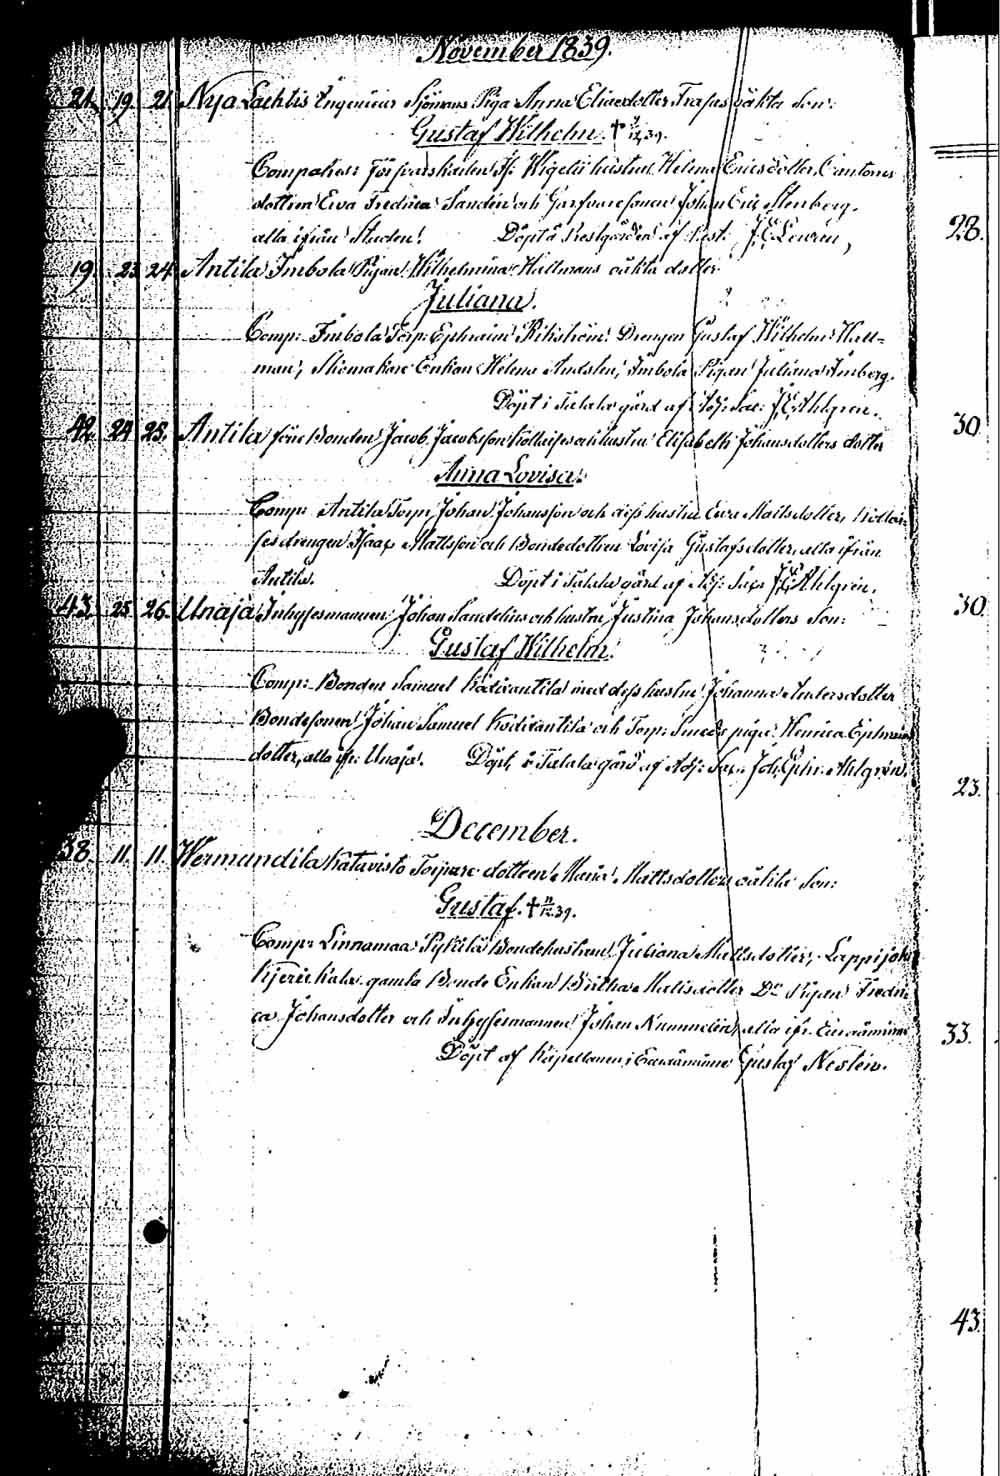 November 1839.
21. 19. 21. Nya Lachtis Ingenieur Sjömans Piga Anna Eliaedotter oäkta Son:
Gustaf Wilhelm. † 3/12 39.
hustru Helena Ericsdotter, Cantors
dottren Eva Fredrica Sandin och Garfvaresonen Johan Eric Stenberg.
alla ifrån Staden. Döpt å Prestgården af Past. J. E. Lewren,
28.
19. 23. 24. Antila Imbola Pigan Wilhelmina Hallmans oäkta dotter
Juliana.
Comp: Imbola Torp: Ephraim Wikström, Drengen Gustaf Wilhelm Hall-
man, Skomakare Enkan Helena Imbola Pigan Juliana Imberg.
Döpt i Tulala gård af Adj: Sac: J. E. Ahlgren.
42. 24. 25. Antila före Bonden Jacob Jacobsson och hustru Elisabeth Johansdotters dotter
30.
Anna Lovisa.
Comp: Antila Torp: Johan Johansson och dess hustru Eva Mattsdotter,
drengen Isaac Mattsson och Bondedottren Lovisa Gustafsdotter, alla ifrån
Antila. Döpt i Tulala gård af Adj: Sac: J. E. Ahlgren.
43. 25. 26. Unaja Inhysesmannen Johan Sandelius och hustru Justina Johansdotters Son:
30.
Gustaf Wilhelm.
Comp: Bonden Samuel Kodivantila med dess hustru Johanna Andersdotter
Bondesonen Johan Samuel Kodivantila och Torp: Smeds piga Henrica Ephraims
dotter, alla ifr: Unaja. Döpt i Tulala gård af Adj: Sac: Joh. Ephr. Ahlgren.
23.
December.
38. 11. 11. Wermundila Katavisto Torpare dottren Maria Mattsdotters oäkta Son:
Gustaf. † 11/12 39.
Comp: Linnamaa Pyttilä Bondehustrun Juliana Mattsdotter, Lappijoki
Kjerickala gamla Bonde Enkan Britha Matsdotter Do Pigan Fredri
ca Johansdotter och Inhysesmannen Johan Nummelin, alla ifr. Euraåminne
33.
Döpt af Kapellanen i Euraåminne Gustaf Nestén.
43.